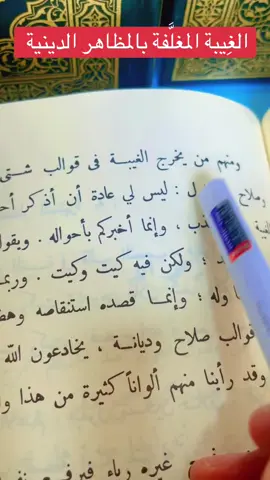 الغِيبة المغلَّفة بالمظاهر الدينية
ومنهم من يخرج الغيبة في قوالب شتى
ليس لي عادة أن أذكر أحـ
، وإنما أخبركم بأحواله . ويقو
؛ ولكن فيه كيت وكيت . وربمـ
وله ؛ وإنما قصده استنقاصه وهضـ
قوالب صلاح وديانة ، يخادعون الله
وقد رأينا منهم ألواناً كثيرة من هذا وأ
غيره رياء فيرفع نفـ